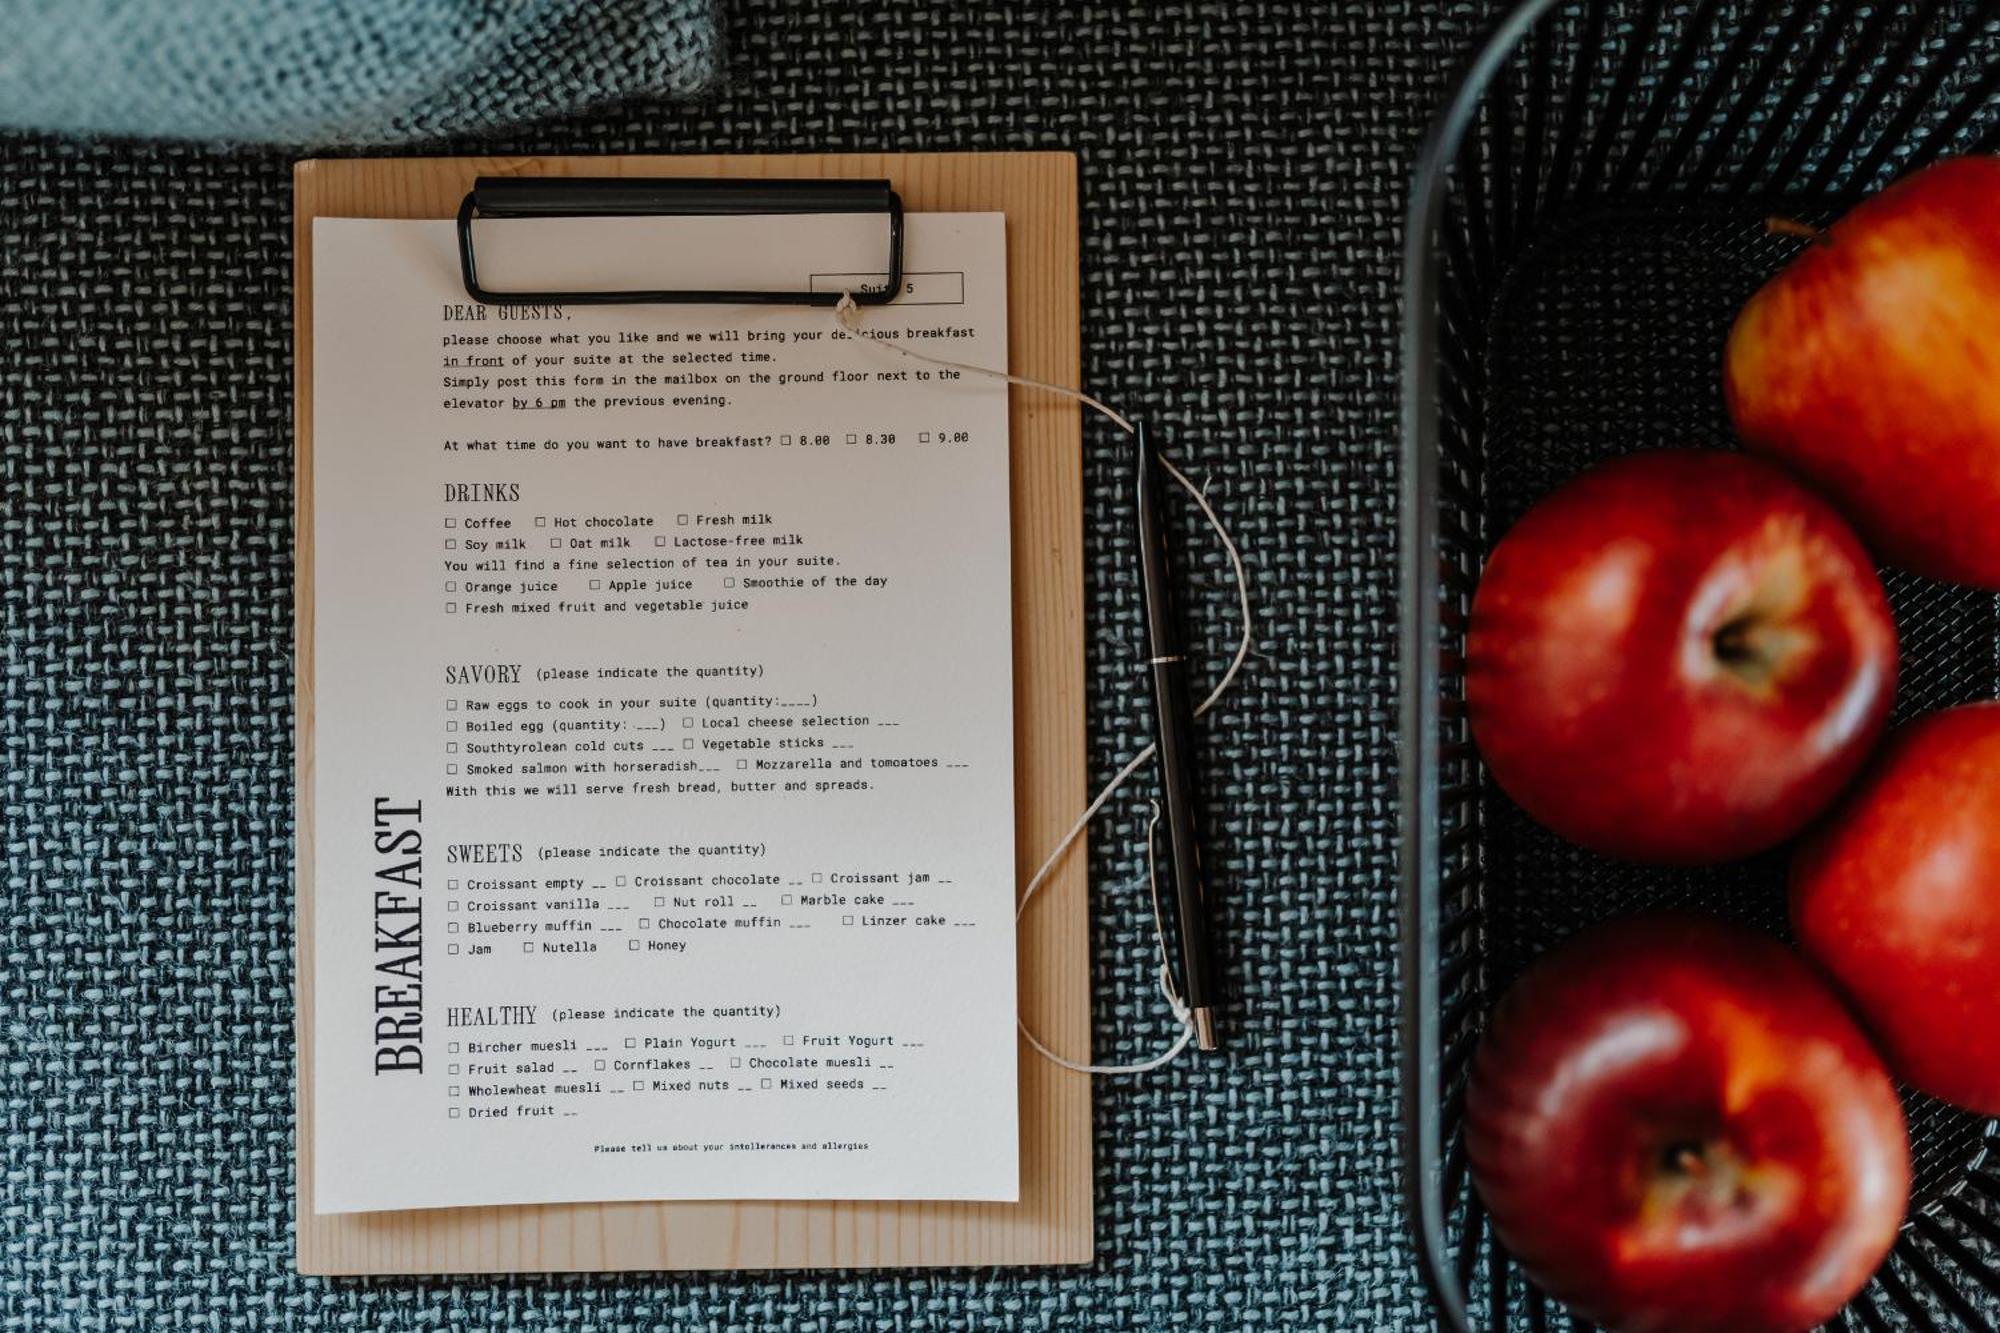 Suite 5
DEAR GUESTS,
please choose what you like and we will bring your delicious breakfast
in front of your suite at the selected time.
Simply post this form in the mailbox on the ground floor next to the
elevator by 6 pm the previous evening.
At what time do you want to have breakfast? ☐ 8.00 ☐ 8.30 ☐ 9.00
DRINKS
☐ Coffee ☐ Hot chocolate ☐ Fresh milk
☐ Soy milk ☐ Oat milk ☐ Lactose-free milk
You will find a fine selection of tea in your suite.
☐ Orange juice ☐ Apple juice ☐ Smoothie of the day
☐ Fresh mixed fruit and vegetable juice
SAVORY (please indicate the quantity)
☐ Raw eggs to cook in your suite (quantity:____)
☐ Boiled egg (quantity: ___) ☐ Local cheese selection ___
☐ Southtyrolean cold cuts ___ ☐ Vegetable sticks ___
☐ Smoked salmon with horseradish___ ☐ Mozzarella and tomoatoes ___
With this we will serve fresh bread, butter and spreads.
SWEETS (please indicate the quantity)
☐ Croissant empty __ ☐ Croissant chocolate __ ☐ Croissant jam __
☐ Croissant vanilla ___ ☐ Nut roll __ ☐ Marble cake ___
☐ Blueberry muffin ___ ☐ Chocolate muffin ___ ☐ Linzer cake ___
☐ Jam ☐ Nutella ☐ Honey
HEALTHY (please indicate the quantity)
☐ Bircher muesli ___ ☐ Plain Yogurt ___ ☐ Fruit Yogurt ___
☐ Fruit salad __ ☐ Cornflakes __ ☐ Chocolate muesli __
☐ Wholewheat muesli __ ☐ Mixed nuts __ ☐ Mixed seeds __
☐ Dried fruit __
Please tell us about your intollerances and allergies
BREAKFAST